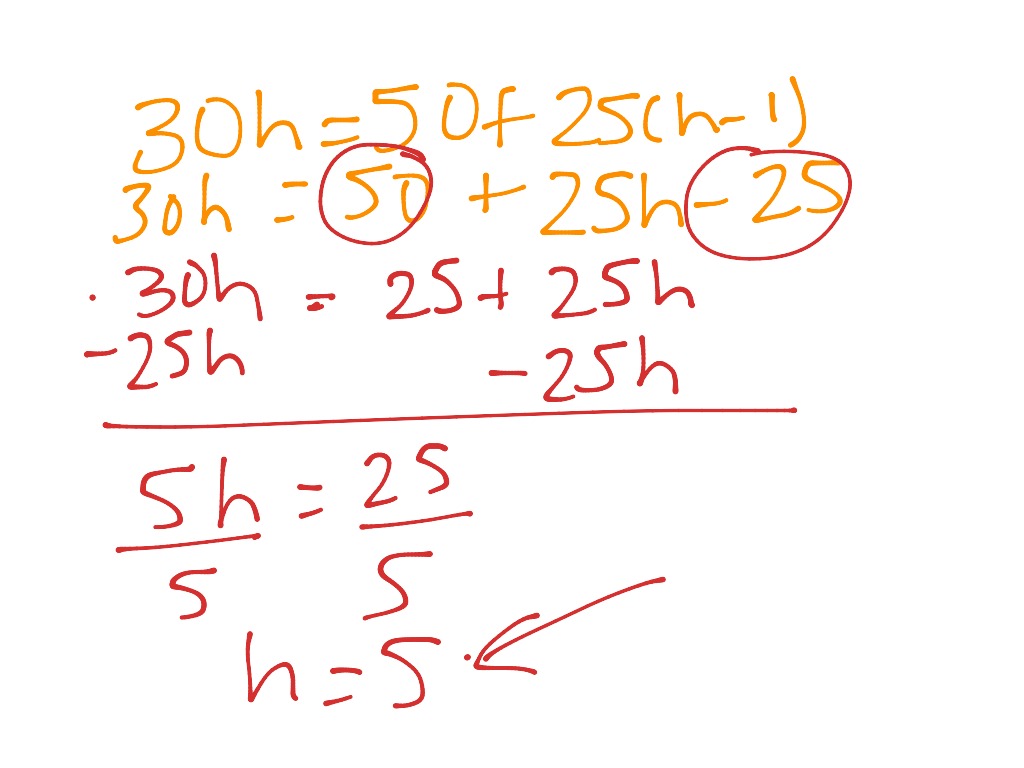 30h = 50 + 25(h - 1)
30h = 50 + 25h - 25
30h = 25 + 25h
- 25h - 25h
5h = 25
5 5
h = 5